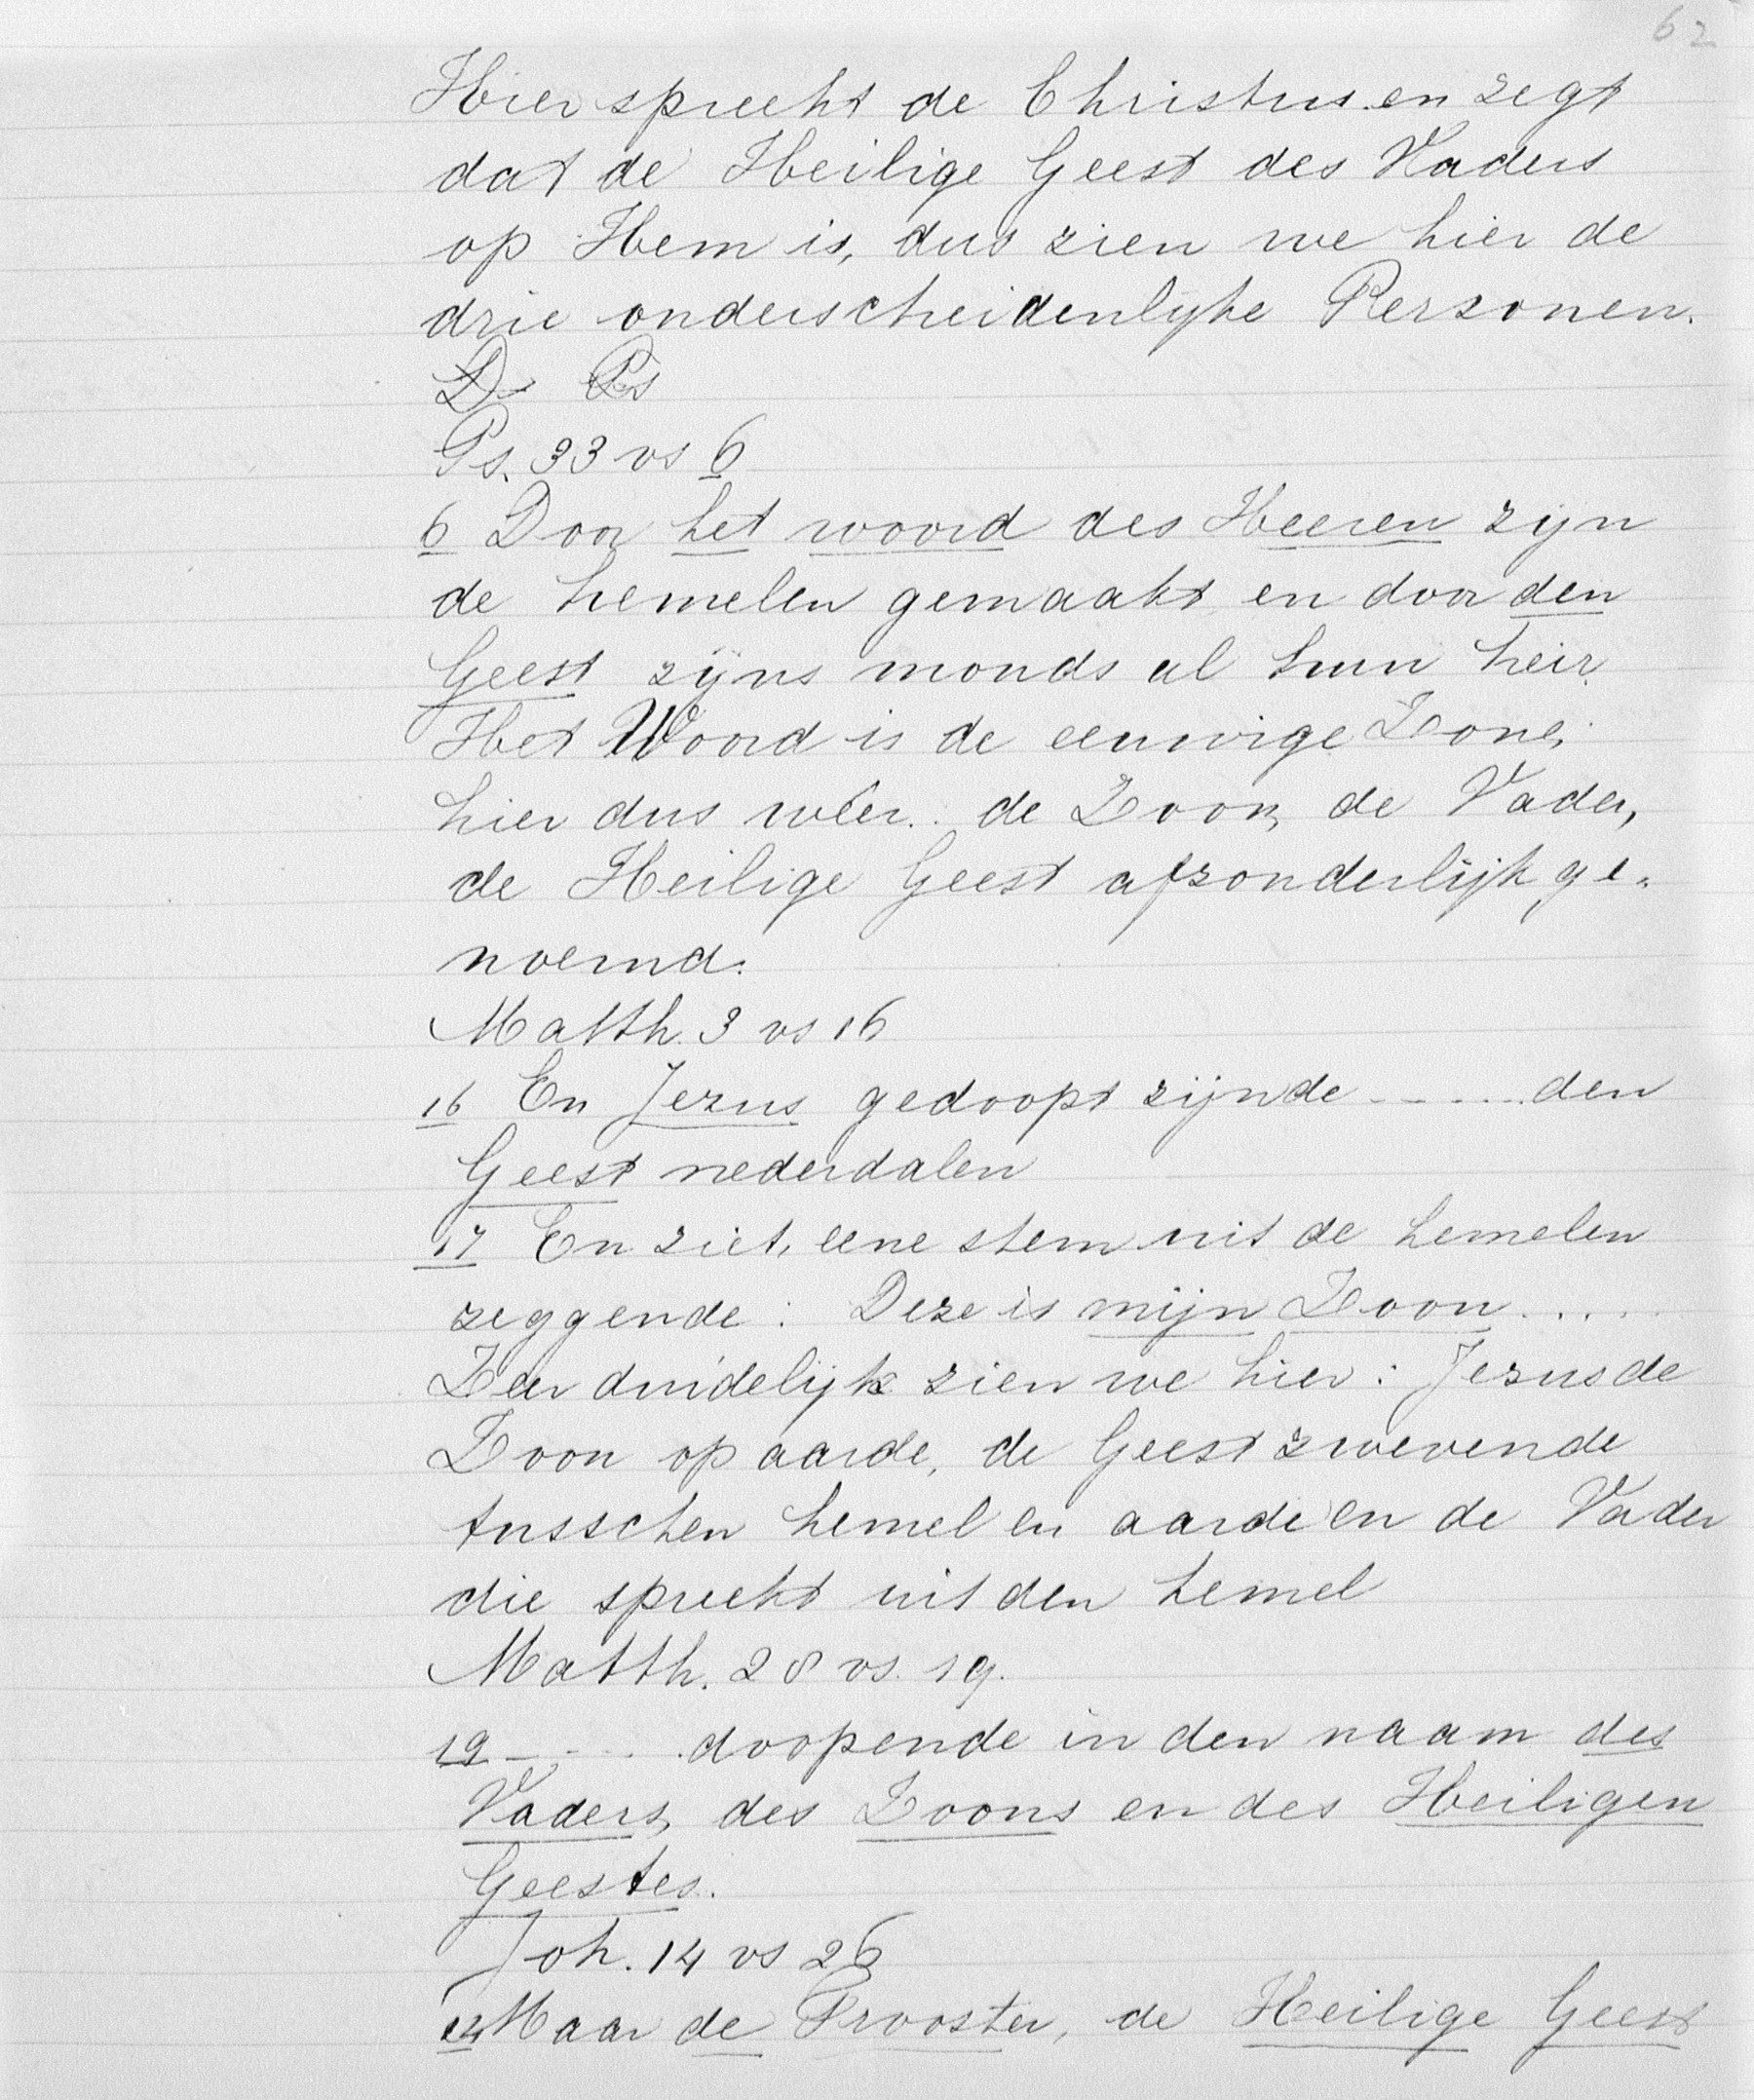 62
Hier spreekt de Christus en zegt
dat de Heilige Geest des Vaders
op Hem is, dus zien we hier de
drie onderscheidenlyke Personen.
D Ps
Ps. 33 vs 6
6 Door het woord des Heeren zijn
de hemelen gemaakt en door den
Geest zijns monds al hun heir.
Het Woord is de eeuwige Zone,
hier dus wéér: de Zoon, de Vader,
de Heilige Geest afzonderlijk ge-
noemd.
Matth. 3 vs 16
16 En Jezus gedoopt zijnde ...... den
Geest nederdalen
17 En ziet, eene stem uit de hemelen
zeggende: Deze is mijn Zoon .....
Zeer duidelijk zien we hier: Jezus de
Zoon op aarde, de Geest zwevende
tusschen hemel en aarde en de Vader
die spreekt uit den hemel
Matth. 28 vs. 19.
19 ..... doopende in den naam des
Vaders, des Zoons en des Heiligen
Geestes.
Joh. 14 vs 26
Maar de Trooster, de Heilige Geest